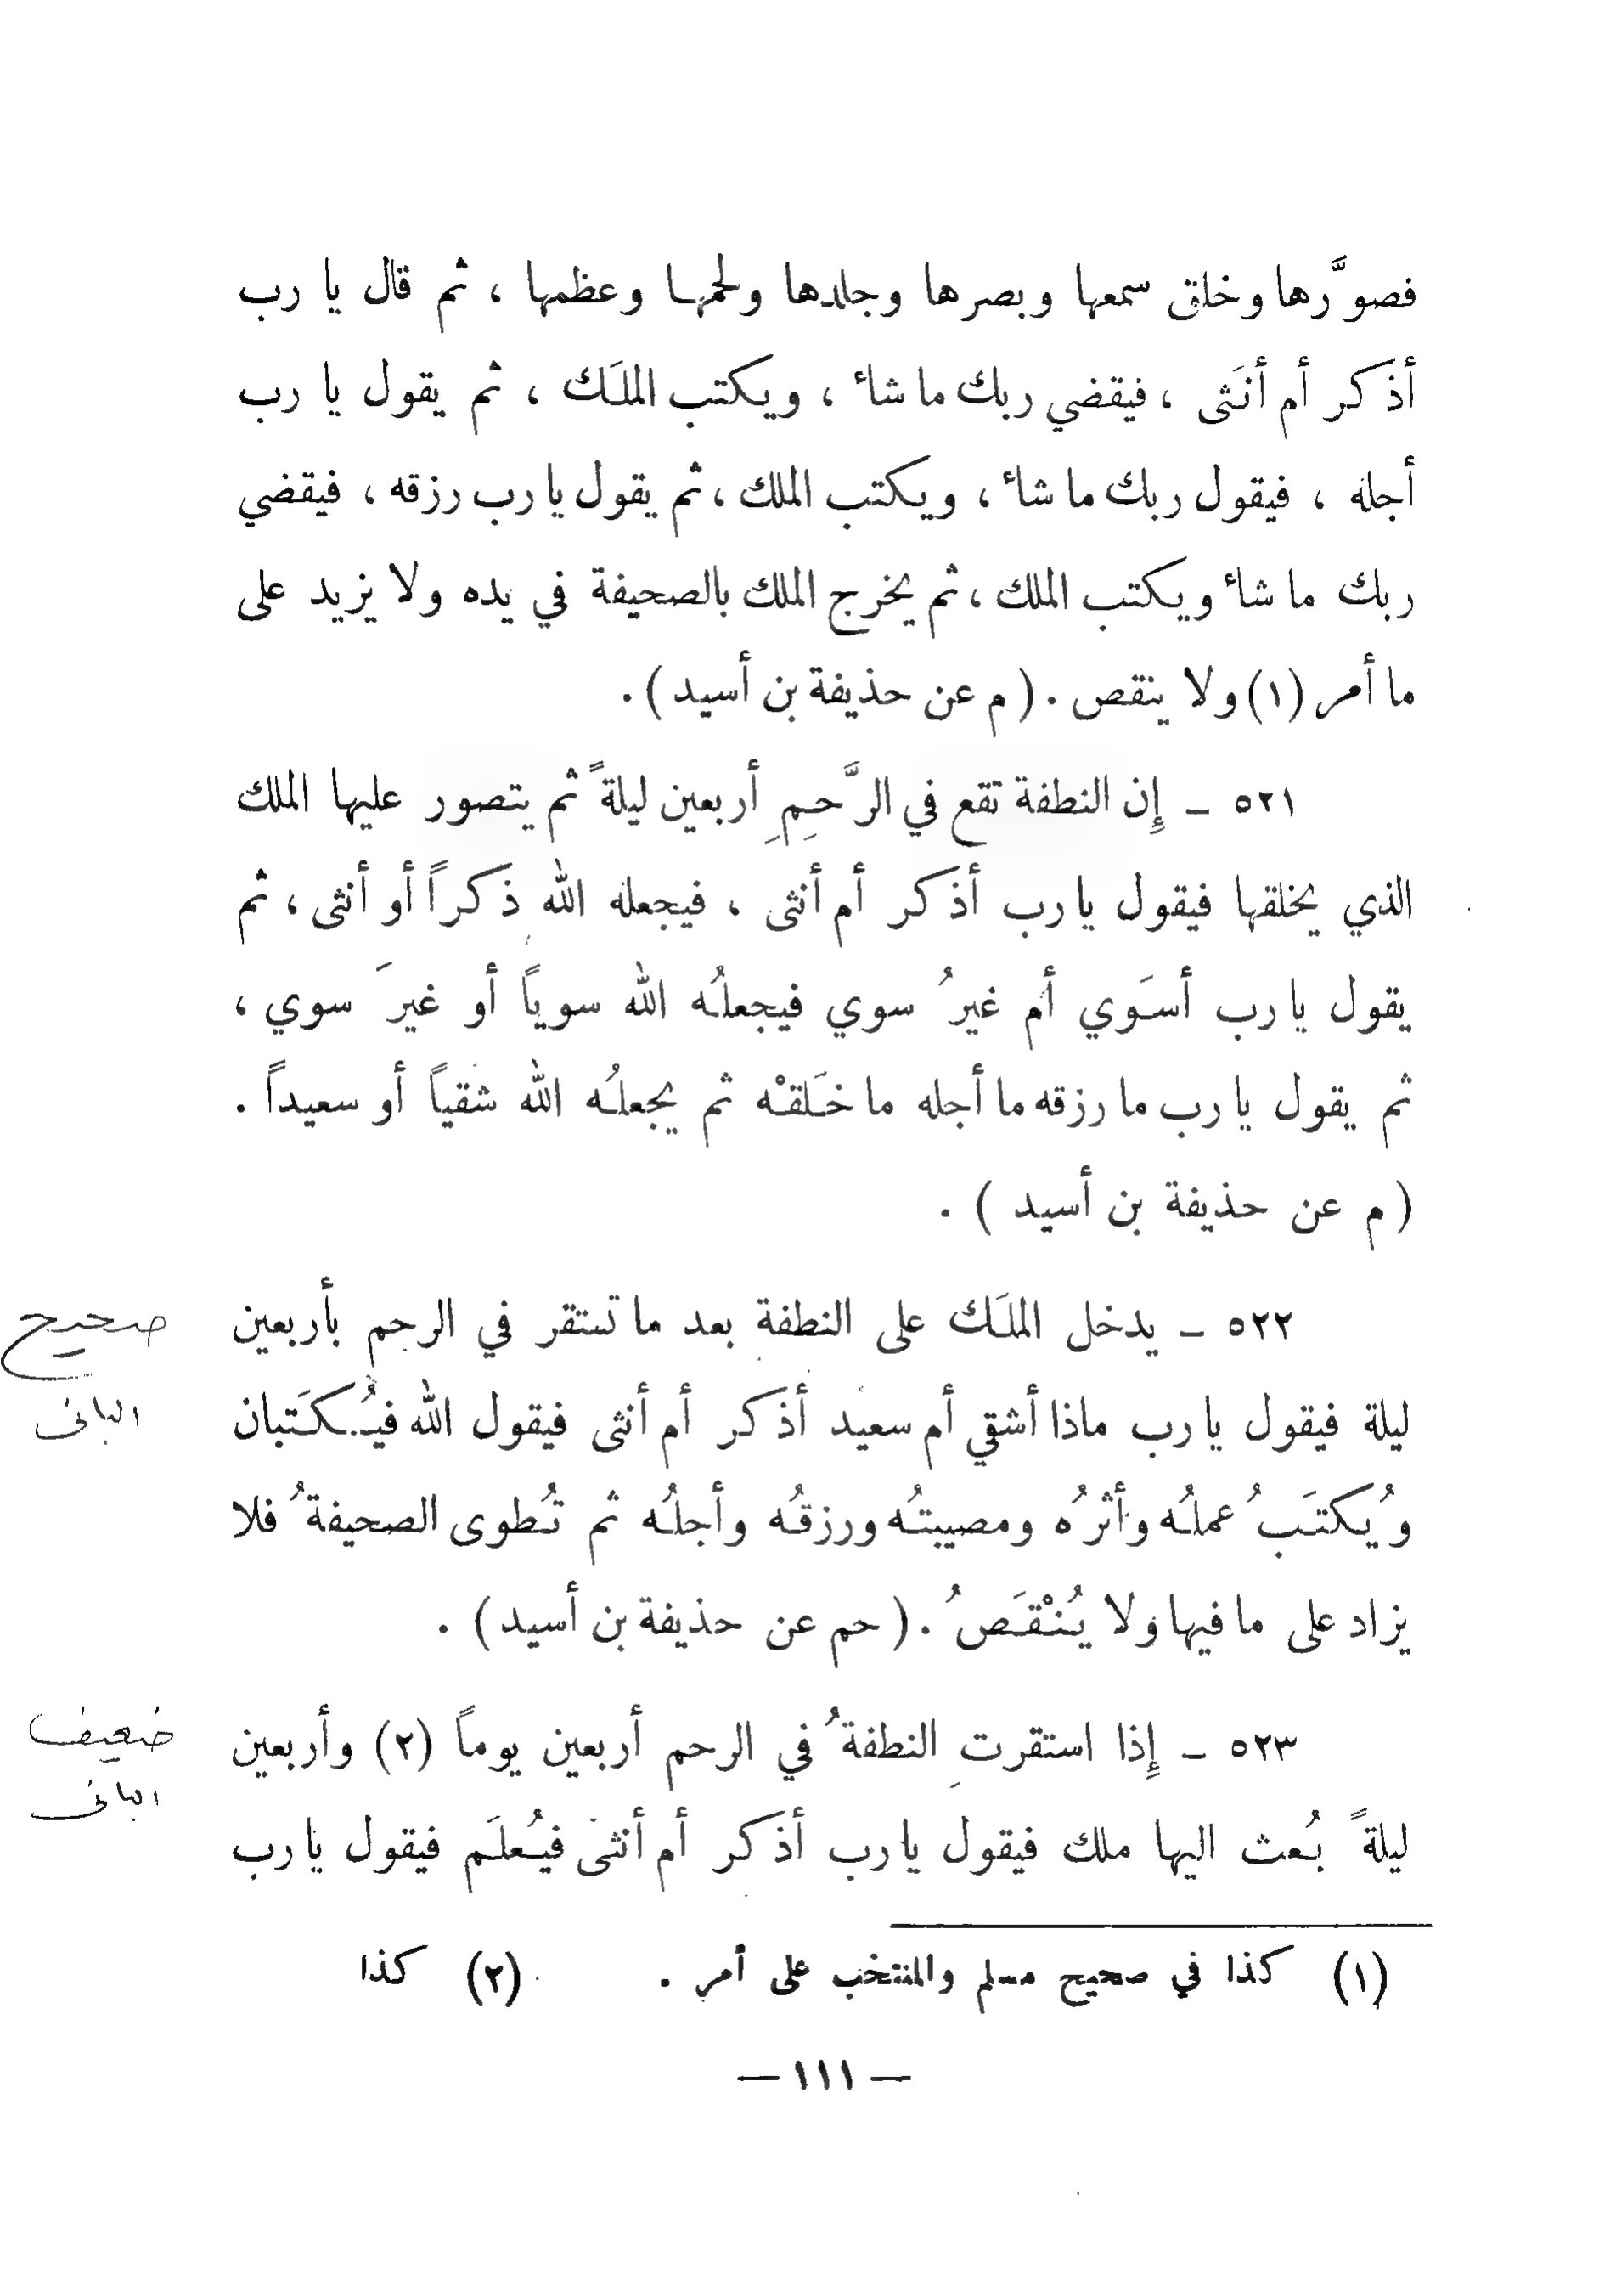 فصوَّرها وخلق سمعها وبصرها وجلدها ولحمها وعظمها ، ثم قال يا رب
أذكر أم أنَثى ، فيقضي ربك ما شاء ، ويكتب الملَك ، ثم يقول يا رب
أجله ، فيقول ربك ما شاء ، ويكتب الملك ، ثم يقول يا رب رزقه ، فيقضي
ربك ما شاء ويكتب الملك ، ثم يخرج الملك بالصحيفة في يده ولا يزيد على
ما أمر (١) ولا ينقص . ( م عن حذيفة بن أسيد ) .
٥٢١ ـ إِن النطفة تقع في الرَّحِمِ أربعين ليلةً ثم يتصور عليها الملك
الذي يخلقها فيقول يا رب أذكر أم أنثى ، فيجعله الله ذكراً أو أنثى ، ثم
يقول يا رب أسَوي أم غيرُ سوي فيجعلُه الله سوياً أو غيرَ سوي ،
ثم يقول يا رب ما رزقه ما أجله ما خَلقْه ثم يجعلُه الله شقياً أو سعيداً .
( م عن حذيفة بن أسيد ) .
٥٢٢ ـ يدخل الملَك على النطفة بعد ما تستقر في الرحم بأربعين
صحيح
ليلة فيقول يا رب ماذا أشقي أم سعيد أذكر أم أنثى فيقول الله فيُكتَبان
البانى
وُيكتَبُ عملُه وأثرُه ومصيبتُه ورزقُه وأجلُه ثم تُطوى الصحيفةُ فلا
يزاد على ما فيها ولا يُنْقَصُ . ( حم عن حذيفة بن أسيد ) .
٥٢٣ ـ إِذا استقرتِ النطفةُ في الرحم أربعين يوماً (٢) وأربعين
ضعيف
ليلةً بُعث اليها ملك فيقول يا رب أذكر أم أنثى فيُعلَم فيقول يا رب
البانى
(١) كذا في صحيح مسلم والمنتخب على أمر .
(٢) كذا
— ١١١ —